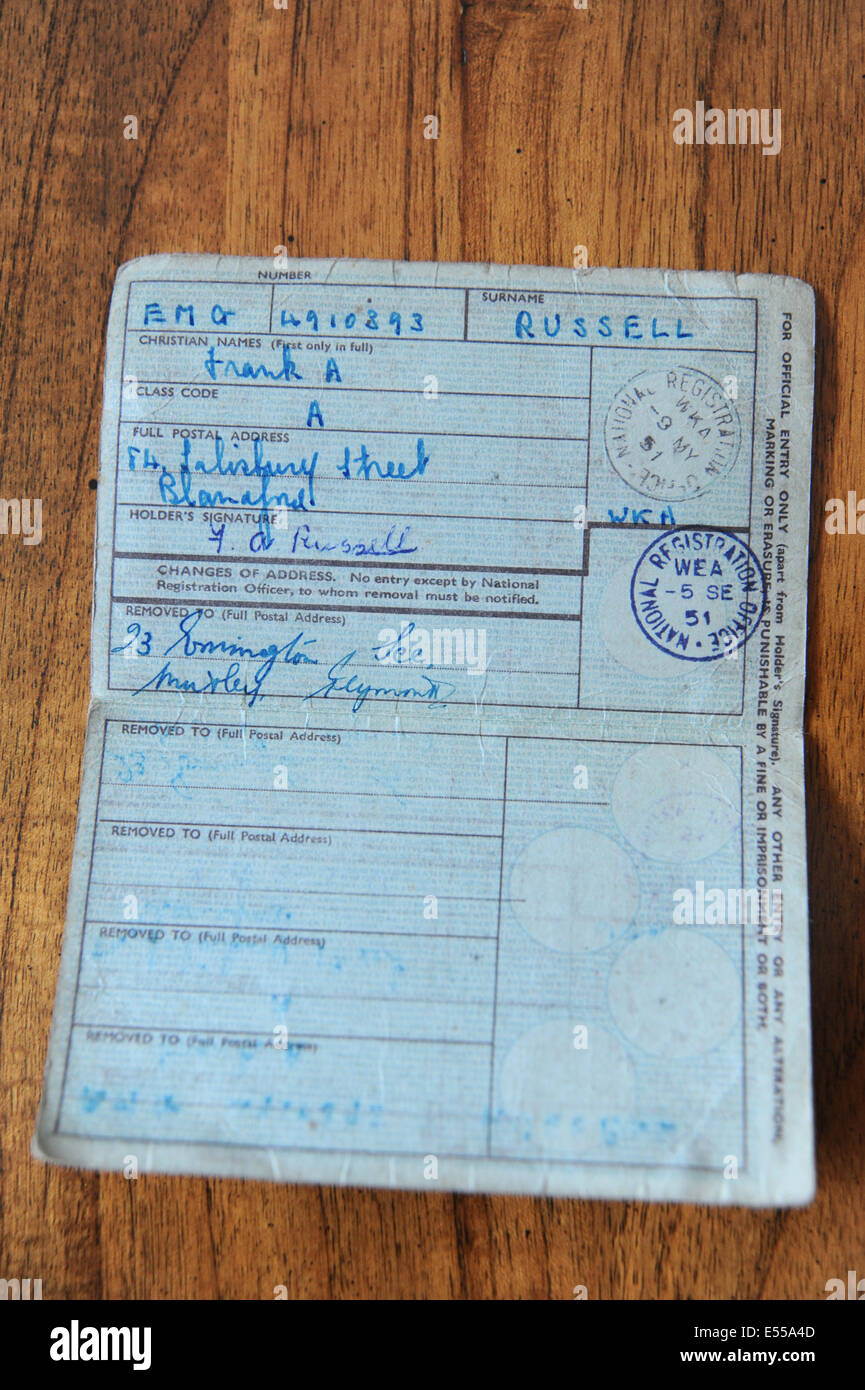 NUMBER
EMG 4910893
SURNAME
RUSSELL
CHRISTIAN NAMES (First only in full)
Frank A
CLASS CODE
A
FULL POSTAL ADDRESS
84, Salisbury Street
Blandford
HOLDER'S SIGNATURE
F. A Russell
NATIONAL REGISTRATION OFFICE
WKA
9 MY
51
WKA
CHANGES OF ADDRESS. No entry except by National
Registration Officer, to whom removal must be notified.
NATIONAL REGISTRATION OFFICE
WEA
-5 SE
51
REMOVED TO (Full Postal Address)
23
REMOVED TO (Full Postal Address)
REMOVED TO (Full Postal Address)
REMOVED TO (Full Postal Address)
REMOVED TO (Full Postal Address)
FOR OFFICIAL ENTRY ONLY (apart from Holder's Signature). ANY OTHER ENTRY OR ANY ALTERATION,
MARKING OR ERASURE, IS PUNISHABLE BY A FINE OR IMPRISONMENT OR BOTH.
alamy
a
alamy
a
alamy
alamy
Image ID: E55A4D
www.alamy.com